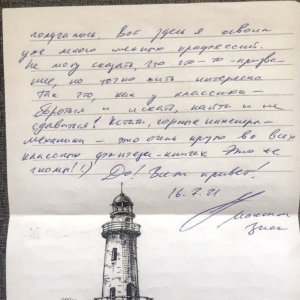 получалось. Вот здесь я освоил
уже много разных профессий.
Не могу сказать, что это-то-призва-
ние, но точно жить интересно
Так что, как у классика-
бороться и искать, найти и не
сдаваться! Кстати, горные инженеры-
механики - это очень круто во всех
классных фэнтези-книгах. Это же
гномы!:) Да! Всем привет!
16.7.21